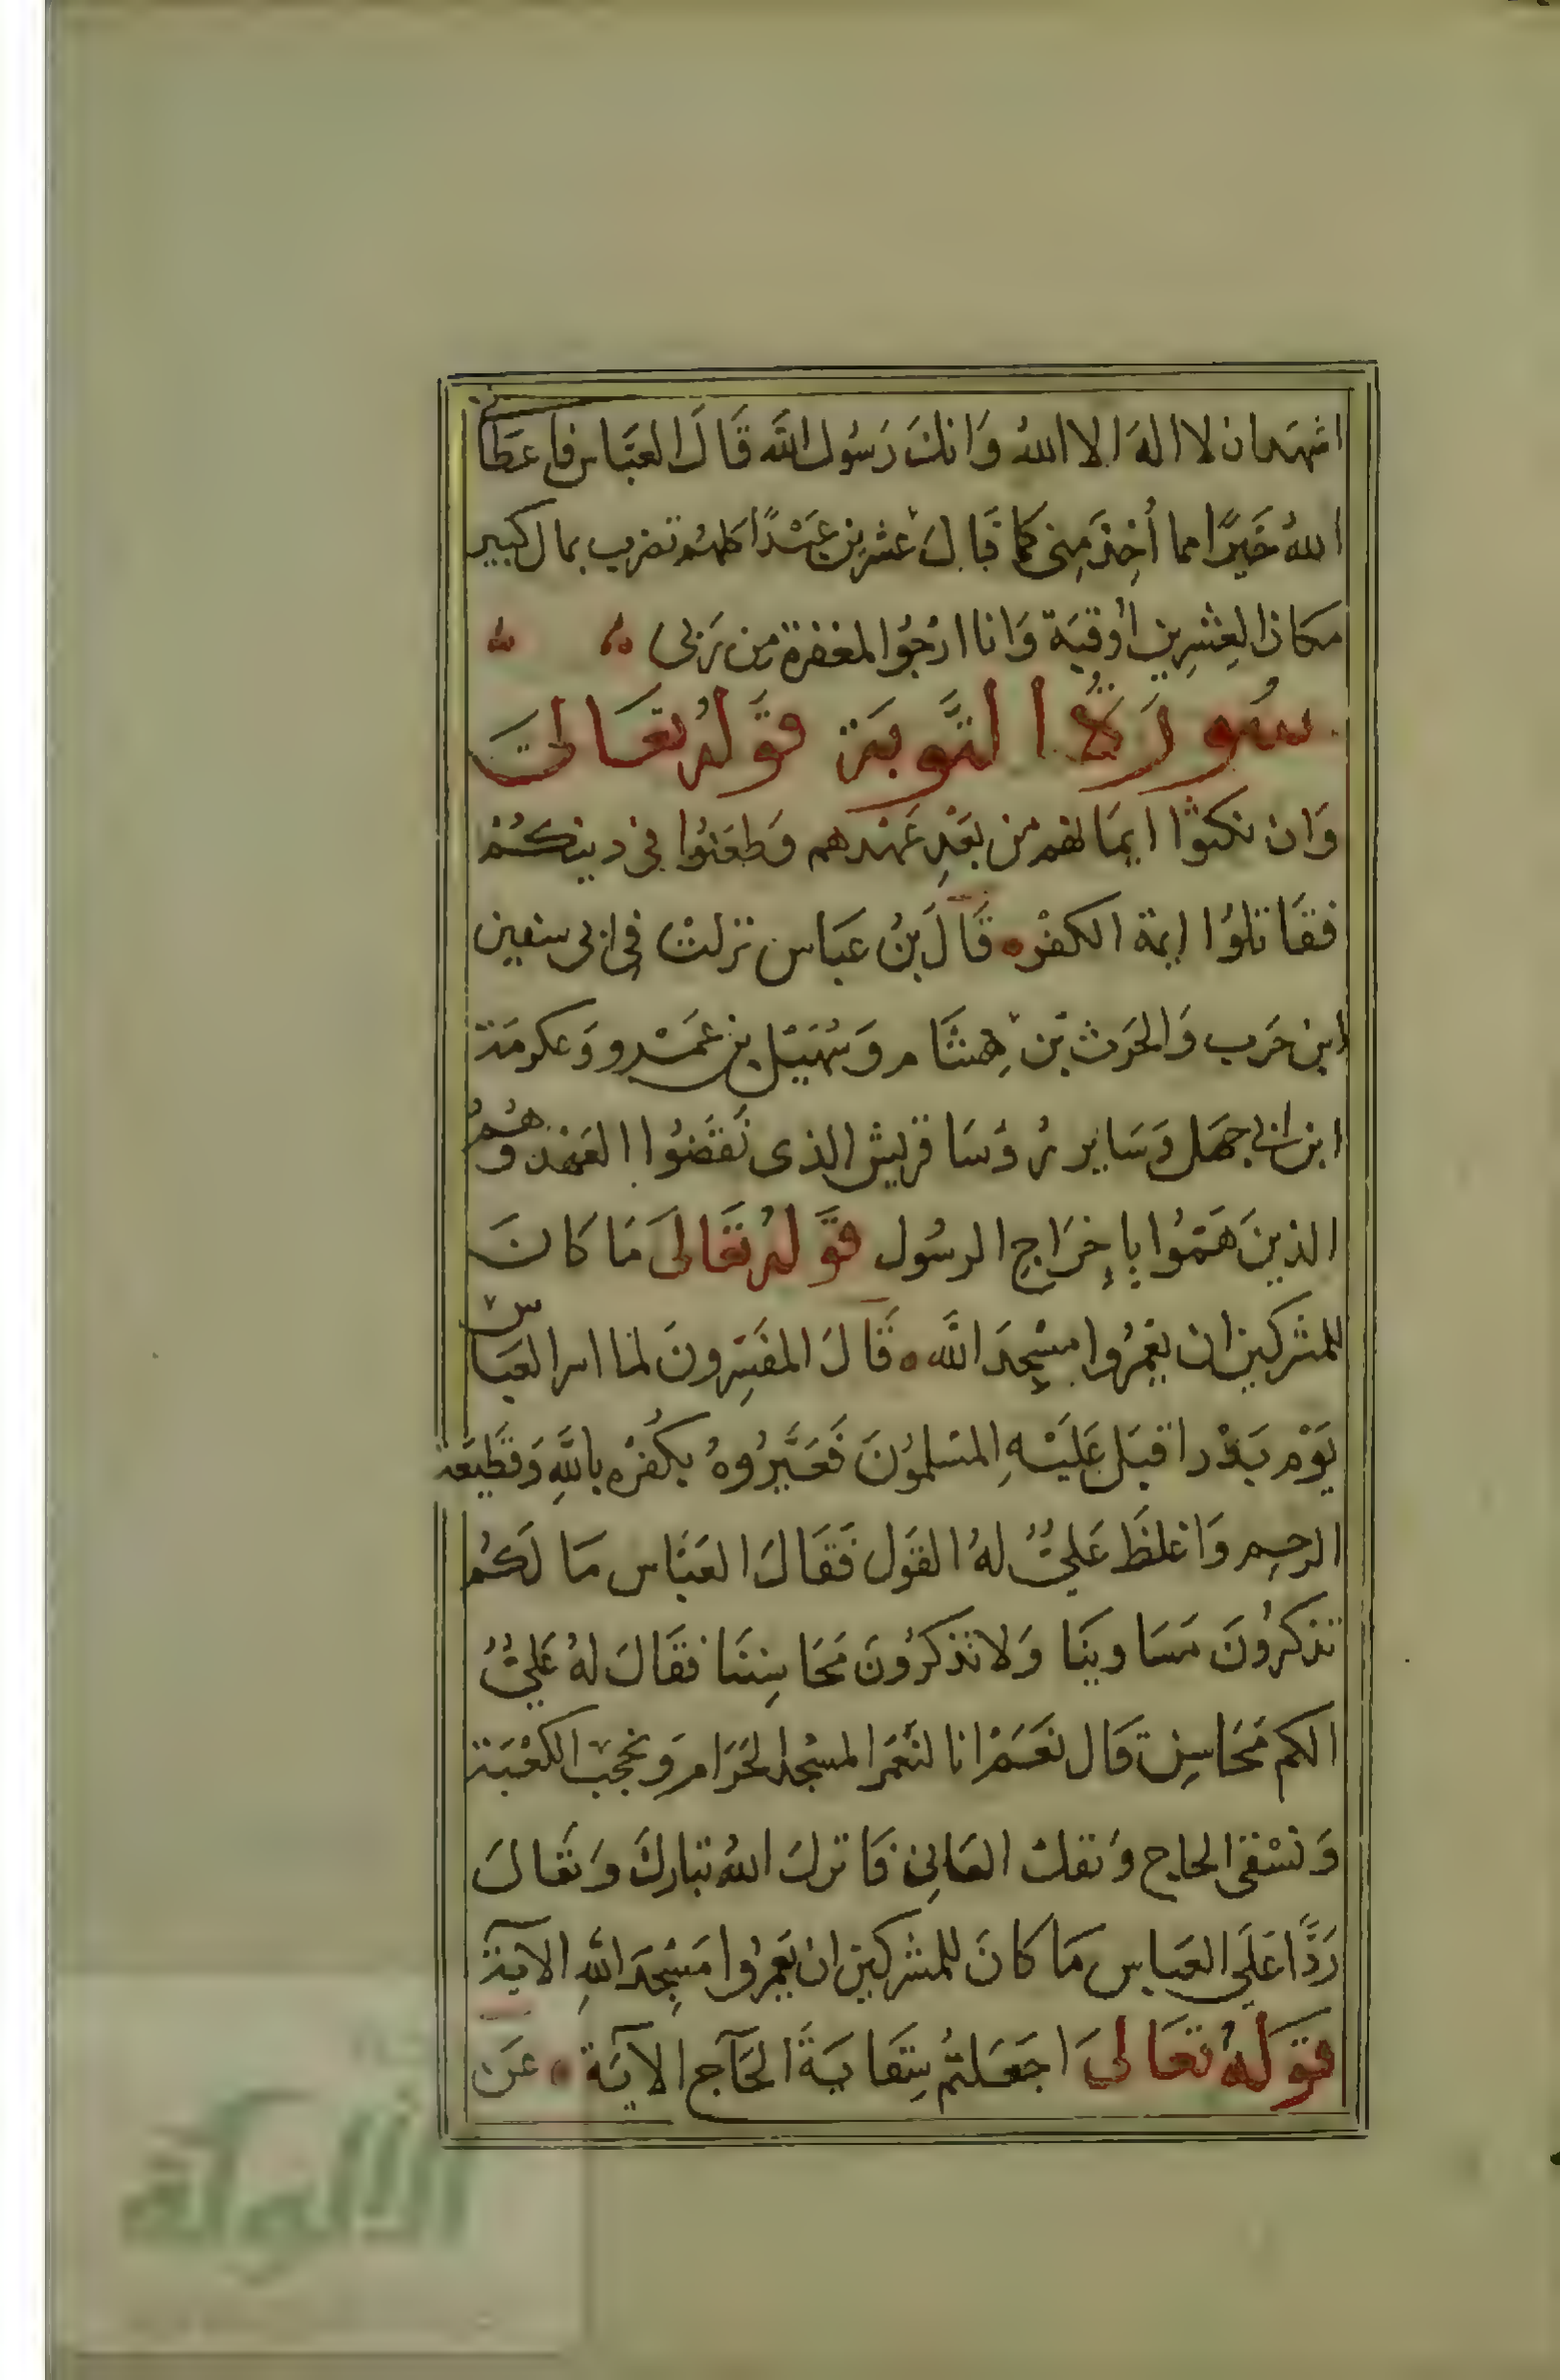 اشهد ان لا اله الا الله وَانك رَسُول الله قَالَ العبَّاس فاعطانى
اللهُ خَيرًا مما أخِذ مِنى كما قَالَ عشرين عَبْدًا كلهم تضرب بمال كبير
مكان العِشرِين أوقيَة وَانا ارْجُوا المغفرة من رَبى
سُورَةُ التَّوبَة قَولهُ تعَالىَ
وَان نكثوا ايمَانهم من بَعْدِ عَهْدهم وَطعَنُوا فى دينكُم
فقَاتلوُا ايمة الكفْر قَالَ بنُ عبَاس نزلتْ فى ابى سفين
ابن حَرب وَالحَرث بن هِشَام وَسُهَيْل بن عَمْرو وَعكرمَة
ابن ابى جهَل وَسَاير رُؤسَا قريش الذى نَقَضُوا العَهْد وَهُمُ
الذينَ هَمّوُا بِإخرَاجِ الرسُول قَولهُ تعَالىَ مَا كَانَ
للمشركين ان يعْمرُوا مسْجِدَ الله قَالَ المفَسِّرونَ لما اسر العبَاس
يَوْم بَدْر اقبَل عَليْهِ المسْلموُنَ فَعَيَّرُوهُ بكُفْره باللهِ وَقَطِيعَة
الرحِم وَاغلَظَ عَلىٌّ لهُ القَول فَقَالَ العبَّاس مَا لَكُم
تذكرُونَ مسَاوينَا وَلا تذكرُونَ مَحَاسِننَا فقَالَ لهُ عَلىٌّ
الكم مَحَاسِن قَال نعَمْ انا لنَعْمَر المسْجد الحرَام وَنحجب الكعْبَة
وَنسْقى الحاج وَنفك العَانِى فَانزل اللهُ تبَاركَ وَتعَالىَ
رَدًّا عَلَى العبَاس مَا كانَ للمشركين ان يَعمرُوا مَسْجِدَ اللهِ الآية
قَولهُ تعَالىَ اجَعَلتُم سِقَايَةَ الحَآج الآيَة عَن
الألوكة